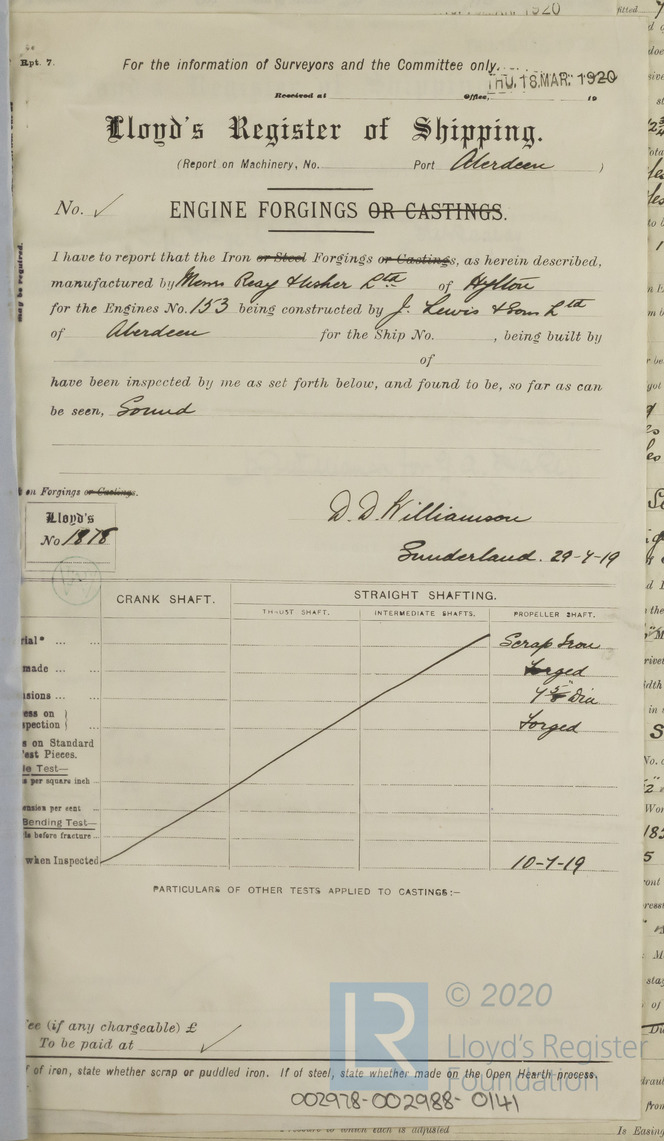 Rpt. 7.
For the information of Surveyors and the Committee only.
THU. 18. MAR. 1920
Received at Office, 19
Lloyd's Register of Shipping.
(Report on Machinery, No. Port Aberdeen )
No. ✓ ENGINE FORGINGS OR CASTINGS.
I have to report that the Iron or Steel Forgings or Castings, as herein described,
manufactured by Messrs Reay & Usher Ltd of Hylton
for the Engines No. 153 being constructed by J. Lewis & Sons Ltd
of Aberdeen for the Ship No. , being built by
of
have been inspected by me as set forth below, and found to be, so far as can
be seen, Sound
may be required.
on Forgings or Castings.
Lloyd's
No 1878
D. D. Williamson
Sunderland. 29-7-19
CRANK SHAFT. STRAIGHT SHAFTING.
THRUST SHAFT. INTERMEDIATE SHAFTS. PROPELLER SHAFT.
rial* ... ... Scrap Iron
made ... Forged
nsions ... Dia
ess on
spection Forged
s on Standard
est Pieces.
le Test—
s per square inch
ension per cent
Bending Test—
before fracture
when Inspected 10-7-19
PARTICULARS OF OTHER TESTS APPLIED TO CASTINGS:—
ee (if any chargeable) £
To be paid at ✓
f of iron, state whether scrap or puddled iron. If of steel, state whether made on the Open Hearth process.
002978-002988-0141
© 2020
Lloyd's Register
Foundation
LR
which each is adjusted
Is Easing